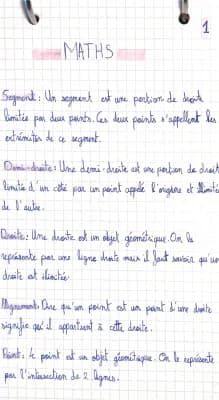 1
MATHS
Segment : Un segment est une portion de droite
limitée par deux points. Ces deux points s'appellent les
extrémités de ce segment.
Demi-droite : Une demi-droite est une portion de droit
limitée d'un côté par un point appelé l'origine et illimité
de l'autre.
Droite : Une droite est un objet géométrique. On la
représente par une ligne droite mais il faut savoir qu'un
droite est illimitée
Alignement : Dire qu'un point est un point d'une droite
signifie qu'il appartient à cette droite.
Point : le point est un objet géométrique. On le représente
par l'intersection de 2 lignes.